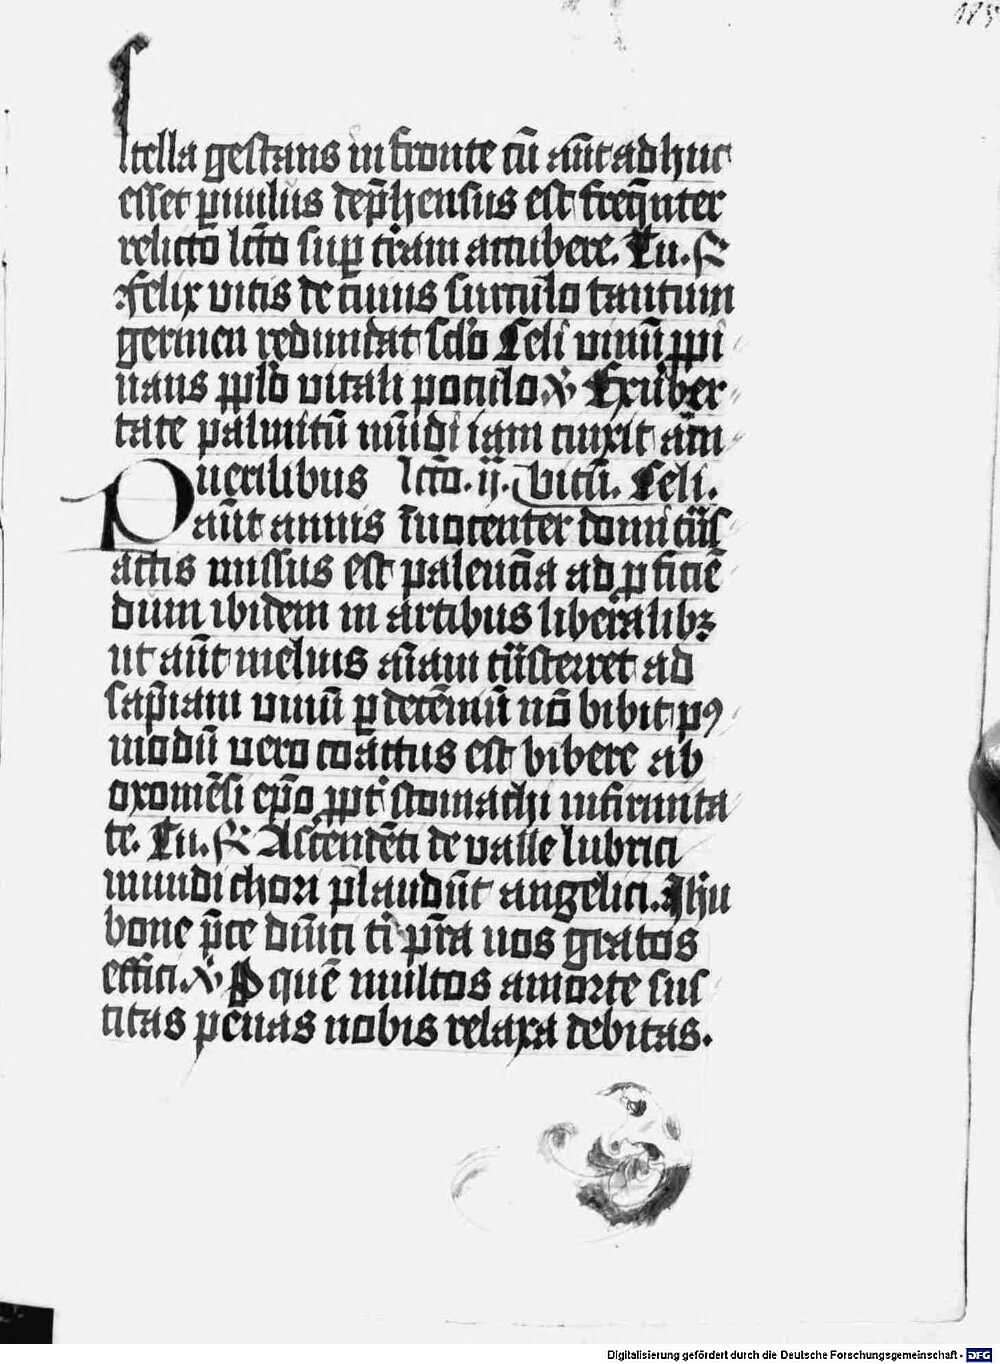 185
stella gestans in fronte cū aūt adhuc
esset puulus dep̄hensus est freq̄nter
relicto lc̄to sup tr̄am accubere. Tu. R
felix vitis de cuius surculo tantum
germen redundat sclo Celi vinū ppi
nans pplo vitali poculo V Exuber
tate palmitū mūdi iam cinxit am̄
Puerilibus lc̄to. ii. vitiū. Celi.
aūt annis īnocenter domi tiis
actis missus est palencia ad pficiē
dum ibidem in artibus liberalibꝫ
ut aūt melius aīam tiisferret ad
sap̄iam vinū p decēniū nō bibit pꝰ
modū vero coactus est bibere ab
oxomēsi epo ppt stomachi infirmita
te. Tu. R Ascendēti de valle lubrici
mundi chori plaudūt angelici. Jhū
bone p̄ce dn̄ici ti pr̄a nos gratos
effici V P quē multos a morte sus
citas penas nobis relaxa debitas.
Digitalisierung gefördert durch die Deutsche Forschungsgemeinschaft - DFG